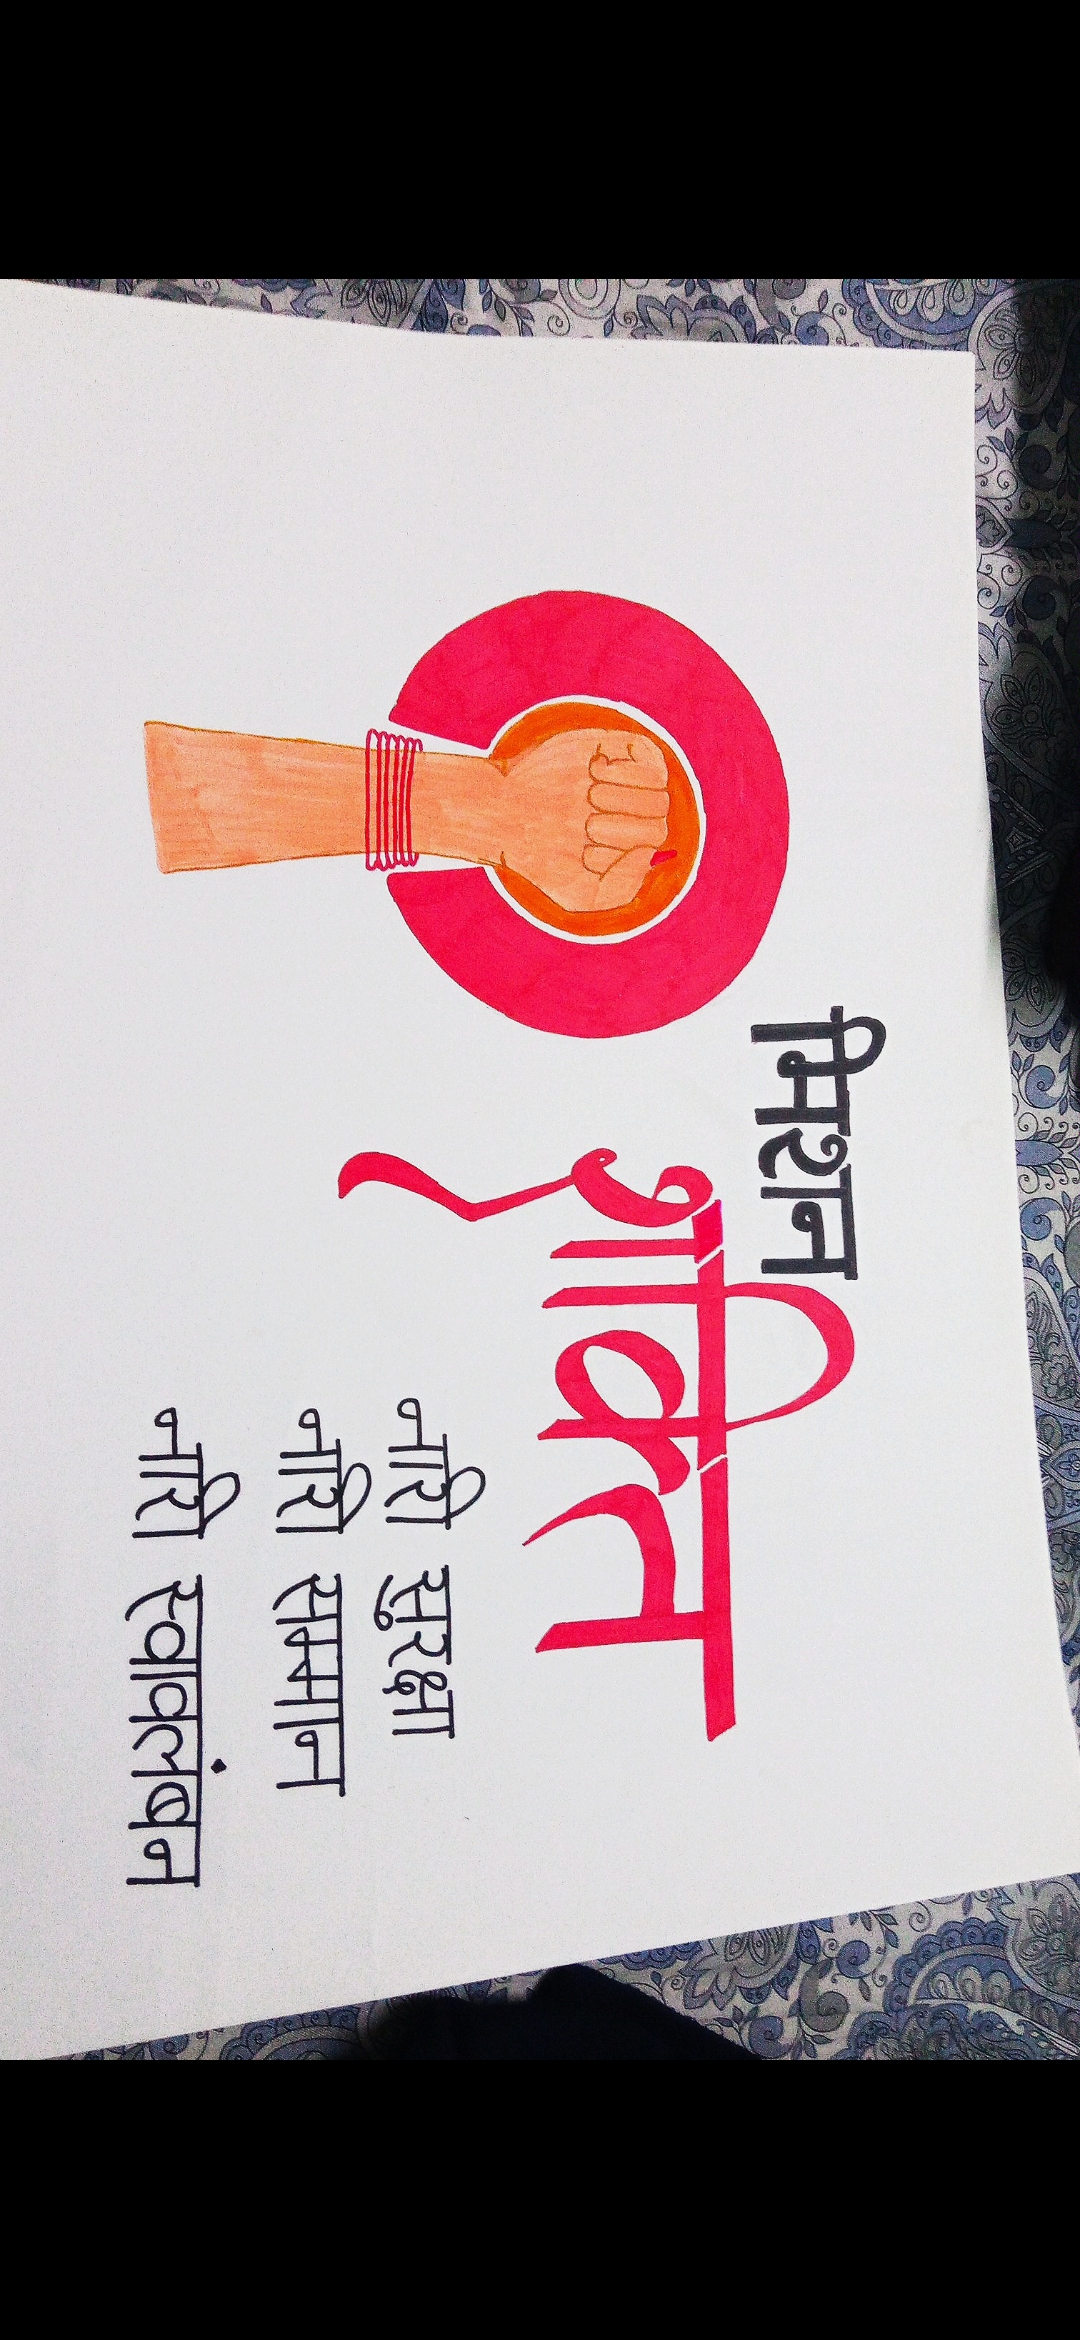 मिशन
शक्ति
नारी सुरक्षा
नारी सम्मान
नारी स्वावलंबन